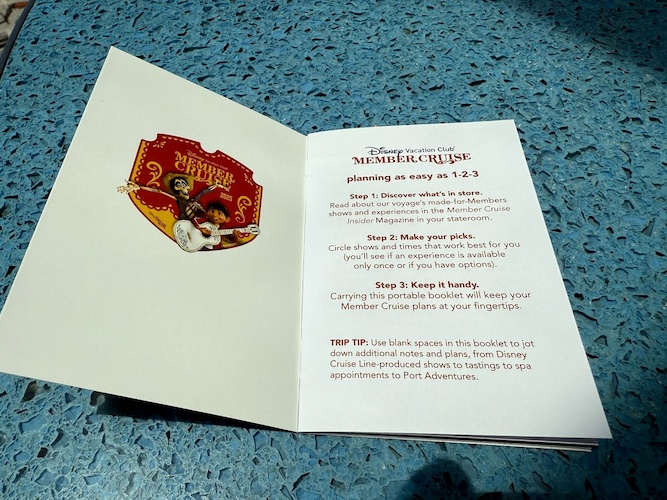 MEMBER
CRUISE
Disney Vacation Club®
MEMBER CRUISE
planning as easy as 1-2-3
Step 1: Discover what's in store.
Read about our voyage's made-for-Members
shows and experiences in the Member Cruise
Insider Magazine in your stateroom.
Step 2: Make your picks.
Circle shows and times that work best for you
(you'll see if an experience is available
only once or if you have options).
Step 3: Keep it handy.
Carrying this portable booklet will keep your
Member Cruise plans at your fingertips.
TRIP TIP: Use blank spaces in this booklet to jot
down additional notes and plans, from Disney
Cruise Line-produced shows to tastings to spa
appointments to Port Adventures.